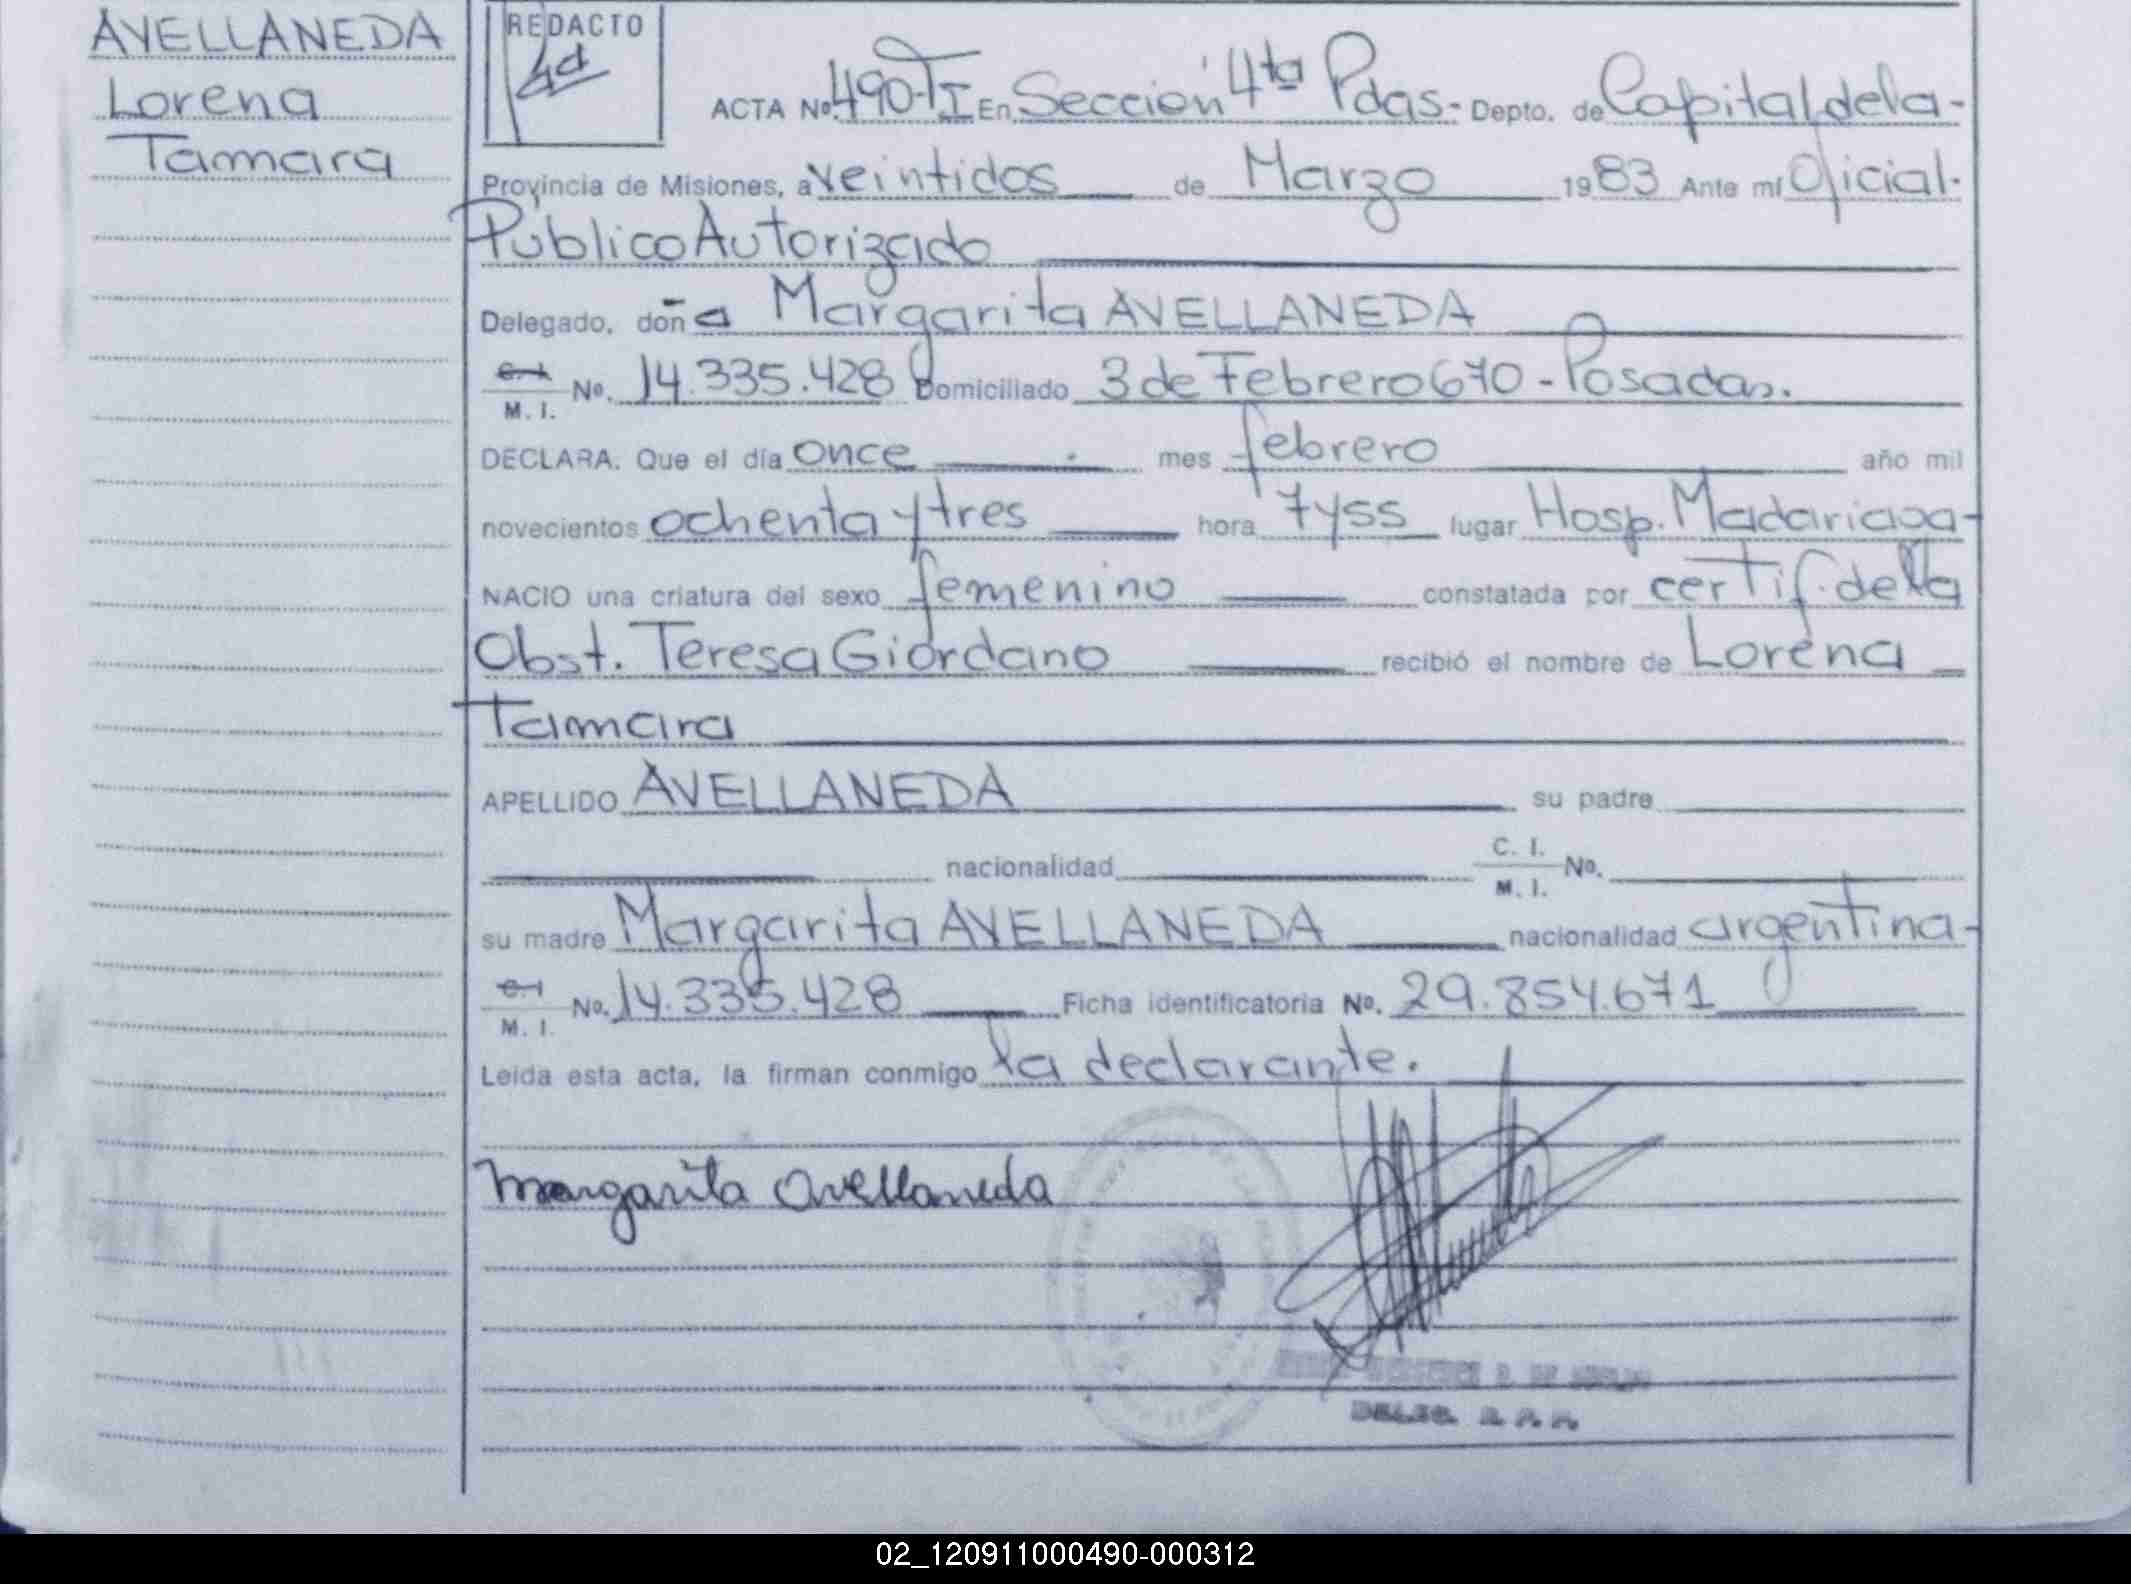 AVELLANEDA
Lorena
Tamara
REDACTO
ACTA Nº 490-TI En Sección 4ta Pdas.- Depto. de Capital de la-
Provincia de Misiones, a veintidos de Marzo 1983 Ante mí Oficial.
Público Autorizado
Delegado, doña Margarita AVELLANEDA
C. I. M. I. Nº. 14.335.428 Domiciliado 3 de Febrero 670 - Posadas.
DECLARA: Que el día once mes febrero año mil
novecientos ochenta y tres hora 7 y 55 lugar Hosp. Madariaga-
NACIO una criatura del sexo femenino constatada por certif. de la
Obst. Teresa Giordano recibió el nombre de Lorena
Tamara
APELLIDO AVELLANEDA su padre
nacionalidad C. I. M. I. Nº.
su madre Margarita AVELLANEDA nacionalidad argentina-
C. I. M. I. Nº. 14.335.428 Ficha identificatoria Nº. 29.854.671
Leída esta acta, la firman conmigo la declarante.
Margarita Avellaneda
02_120911000490-000312